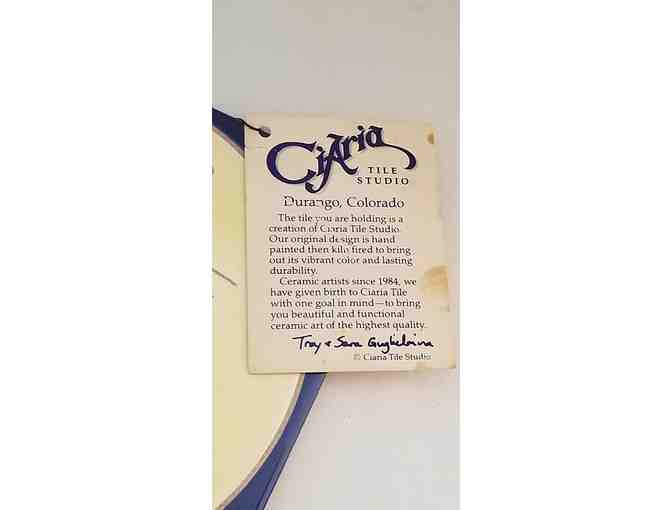 CiAria
TILE
STUDIO
Durango, Colorado
The tile you are holding is a
creation of Ciaria Tile Studio.
Our original design is hand
painted then kiln fired to bring
out its vibrant color and lasting
durability.
Ceramic artists since 1984, we
have given birth to Ciaria Tile
with one goal in mind—to bring
you beautiful and functional
ceramic art of the highest quality.
Troy & Sara
© Ciaria Tile Studio